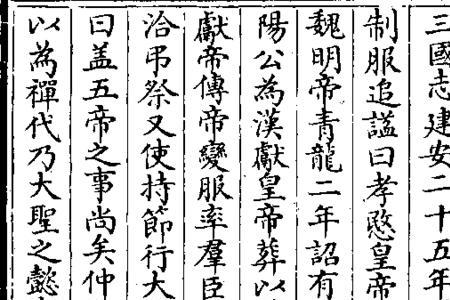 三國志建安二十五年
制服追謚曰孝愍皇帝
魏明帝青龍二年詔有
陽公為漢獻皇帝葬以
獻帝傳帝變服率羣臣
洽弔祭又使持節行大
曰盖五帝之事尚矣仲
以為禪代乃大聖之懿